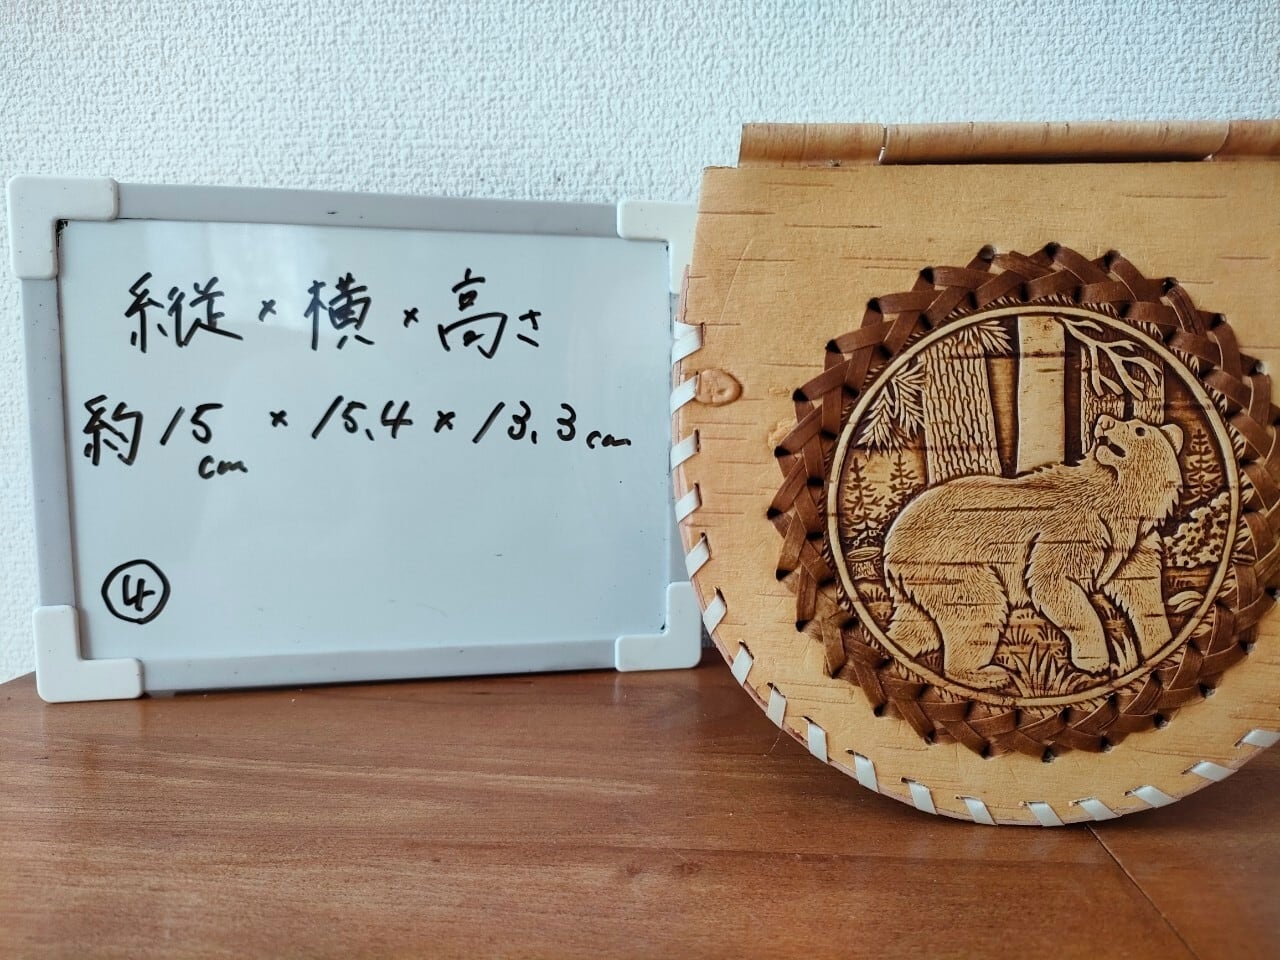 縦×横×高さ
約15cm×15.4×13.3cm
④